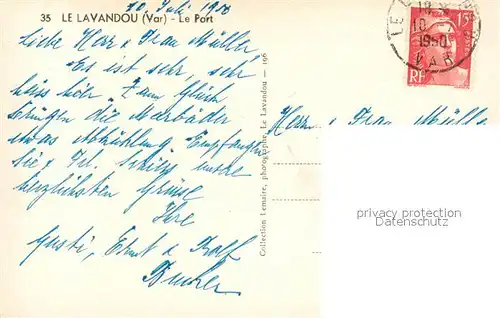 10. Juli 1950
35 LE LAVANDOU (Var) - Le Port
Liebe Herr & Frau Müller
Es ist sehr, sehr
heiss hier. Zum Glück
bringen die Meerbäder
etwas Abkühlung. Empfangen
Sie & Frl. unsere
herzlichsten Grüsse
Ihre
Gusti, Ernst & Rolf
Bucher
Collection Lemaire, photographe, Le Lavandou — 196
Herrn & Frau Müller
LE
10
1950
VAR
15F
RF
privacy protection
www.ansichtskarten-center.de